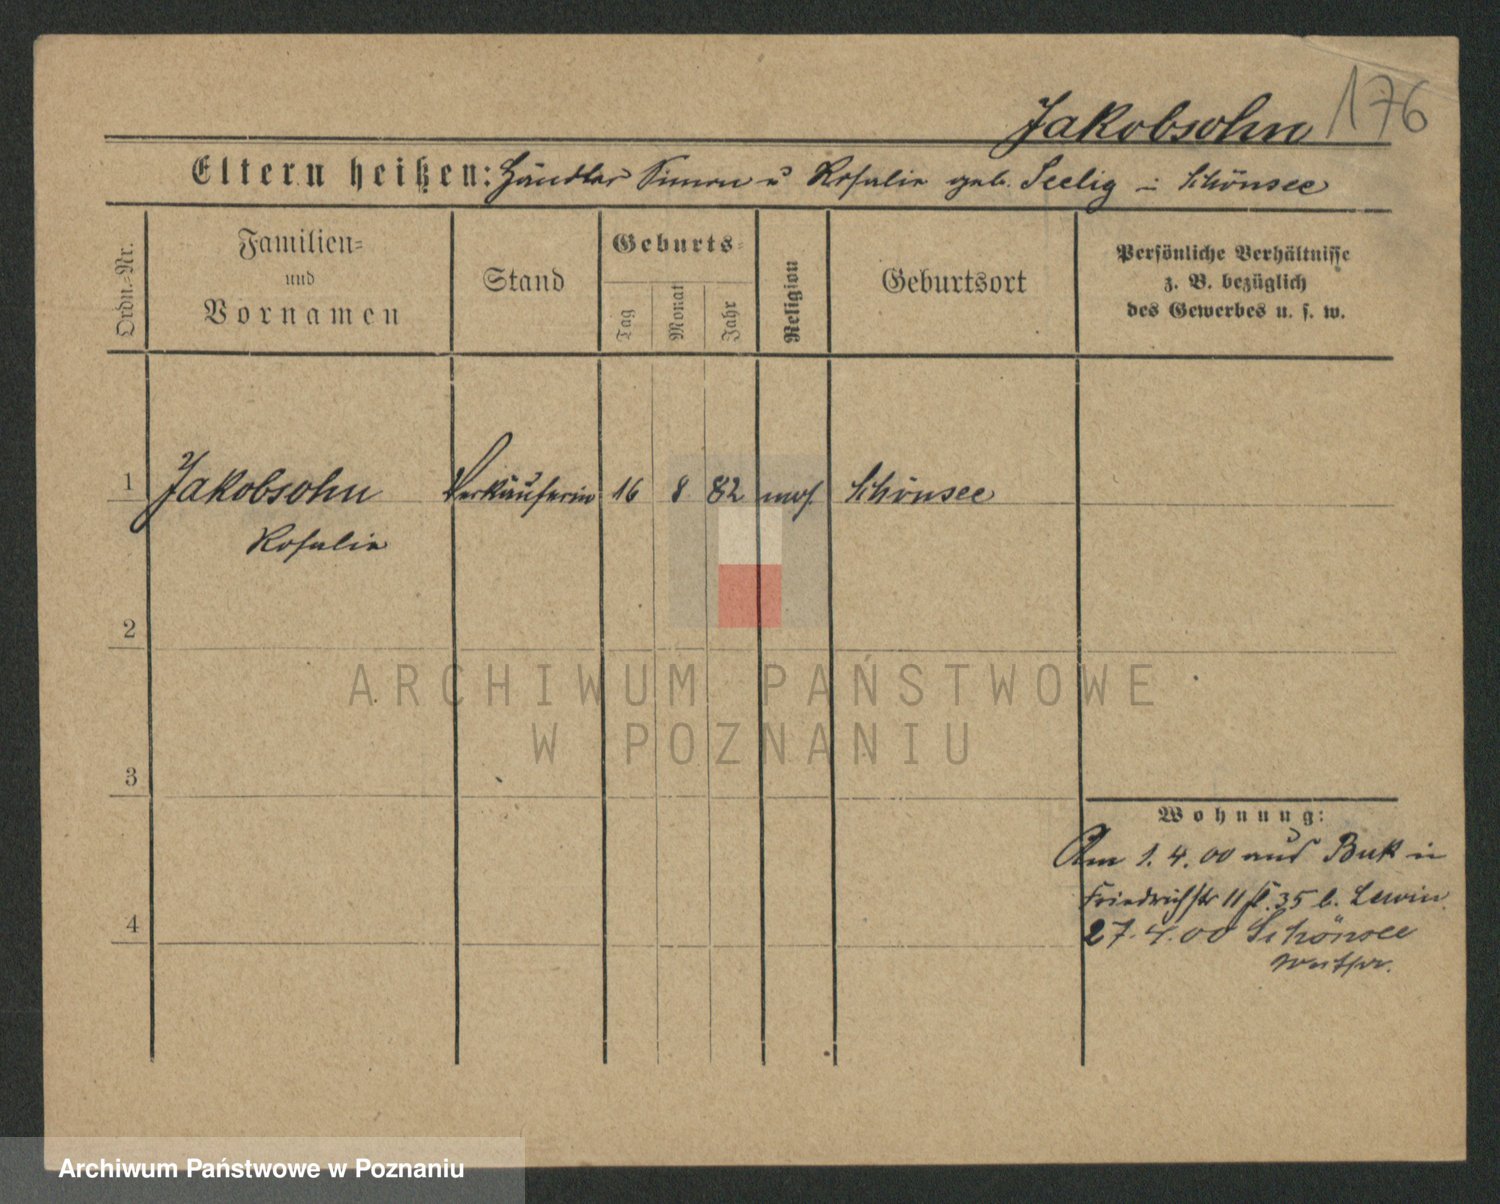 176
Jakobsohn
Eltern heißen: Händler Simon u Rosalie geb. Seelig in Schönsee
Ordn.-Nr.
Familien-
und
Vornamen
Stand
Geburts-
Tag
Monat
Jahr
Religion
Geburtsort
Persönliche Verhältnisse
z. B. bezüglich
des Gewerbes u. s. w.
1 Jakobsohn Verkäuferin 16 8 82 mos. Schönsee
Rosalie
2
ARCHIWUM PAŃSTWOWE
W POZNANIU
3
Wohnung:
Am 1. 4. 00 aus Buk in
Friedrichstr 11 35 b. Lewin
4
27. 4. 00 Schönsee
Westpr.
Archiwum Państwowe w Poznaniu